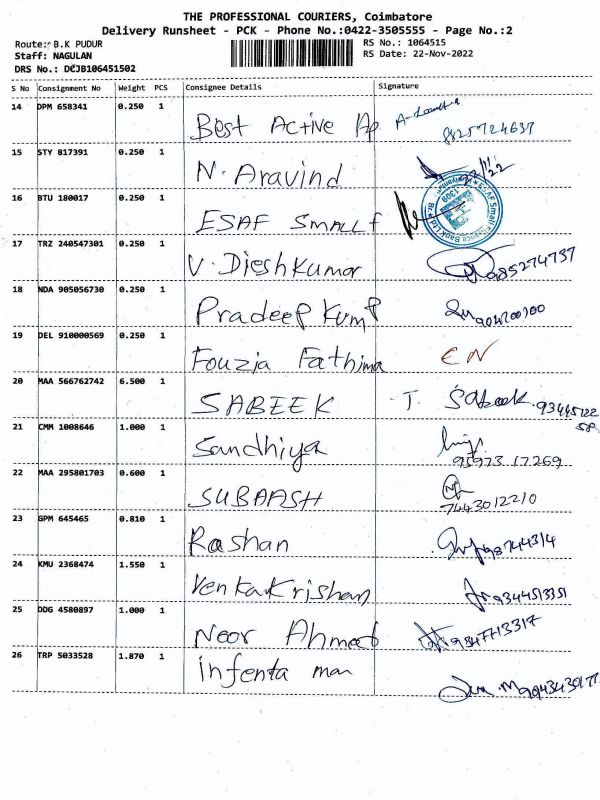 THE PROFESSIONAL COURIERS, Coimbatore
Delivery Runsheet - PCK - Phone No.:0422-3505555 - Page No.:2
Route: B.K PUDUR RS No.: 1064515
Staff: NAGULAN RS Date: 22-Nov-2022
DRS No.: DCJB106451502
S No Consignment No Weight PCS Consignee Details Signature
14 DPM 658341 0.250 1 Best Active Ap 8825724637
15 STY 817391 0.250 1 N. Aravind
16 BTU 180017 0.250 1 ESAF SMALL f
ESAF Small Finance Bank Ltd 1309
17 TRZ 240547301 0.250 1 V. Dieshkumar 985274737
18 NDA 905056730 0.250 1 Pradeep Kump
19 DEL 910000569 0.250 1 Fouzia Fathima EN
20 MAA 566762742 6.500 1 SABEEK T. Sabeek 93445122
58
21 CMM 1008646 1.000 1 Sandhiya 95973 17269
22 MAA 295801703 0.600 1 SUBAASH 7443012210
23 GPM 645465 0.810 1 Rashan
24 KMU 2368474 1.550 1 Venkakrishan 9344513351
25 DDG 4580897 1.000 1 Noor Ahmed 9847713317
26 TRP 5033528 1.870 1 infenta man